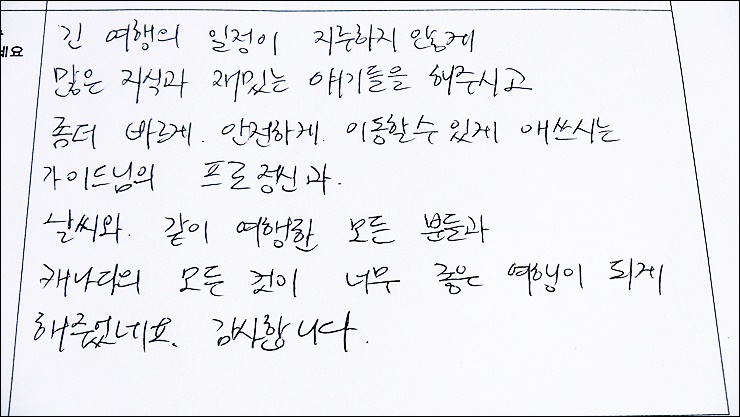 긴 여행의 일정이 지루하지 않게
많은 지식과 재밌는 얘기들을 해주시고
좀더 바르게. 안전하게. 이동할수 있게 애쓰시는
가이드님의 프로정신과.
날씨와. 같이 여행한 모든 분들과
캐나다의 모든 것이 너무 좋은 여행이 되게
해주었네요. 감사합니다.
세요